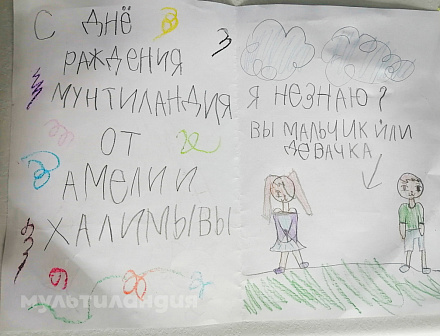 С ДНЁ
РАЖДЕНИЯ
МУНТИЛАНДИЯ
ОТ
АМЕЛИИ
ХАЛИМЫВЫ
Я НЕЗНАЮ?
ВЫ МАЛЬЧИК ИЛИ
ДЕВАЧКА
мультиландия